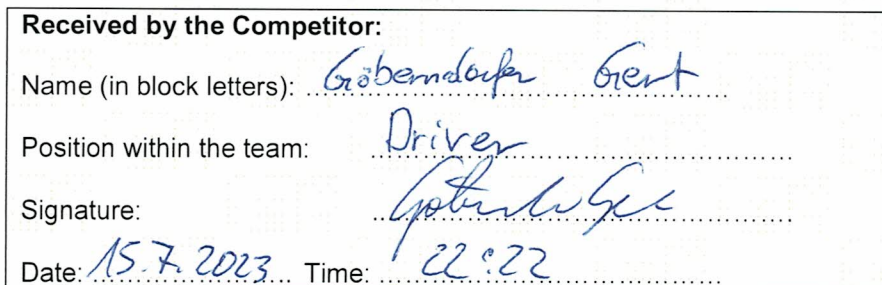 Received by the Competitor:
Name (in block letters): Göberndorfer Gert
Position within the team: Driver
Signature:
Date: 15.7.2023 Time: 22:22